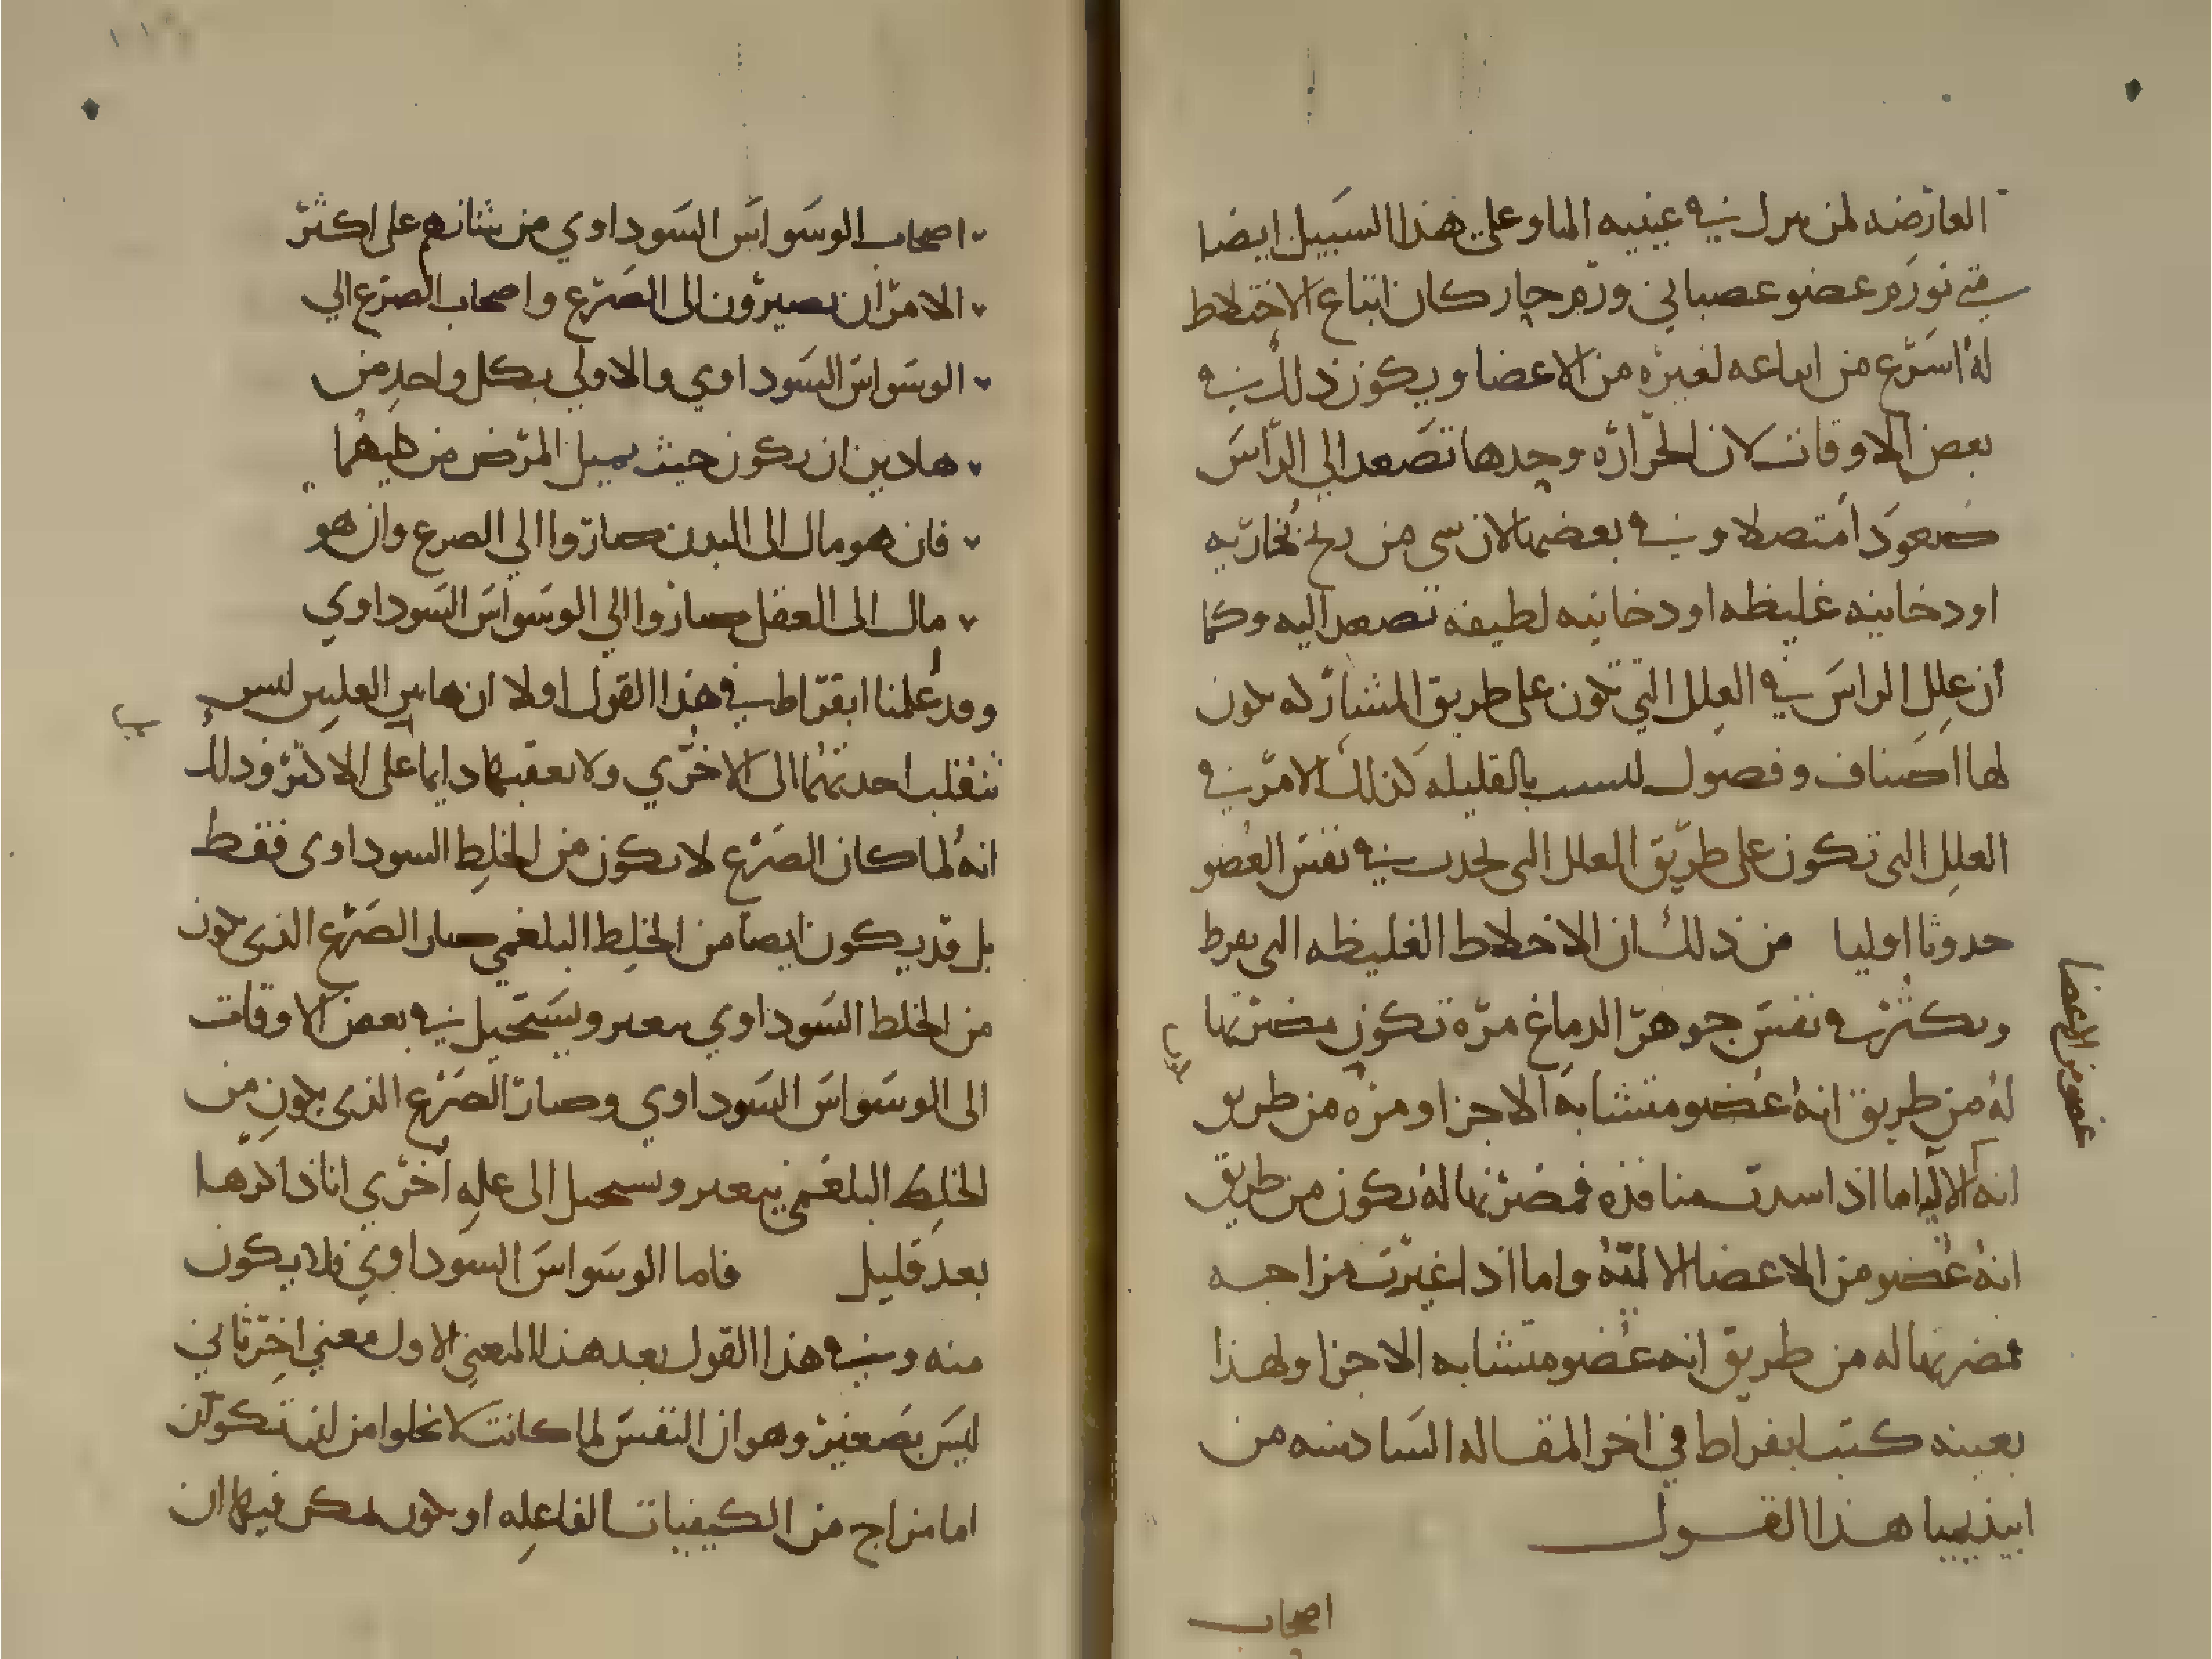 العارضه لمن سرل في عينيه الما وعلي هذا السبيل ايضا
متي تورم عضو عصباني ورم حار كان اتباع الاختلاط
له اسرع من اتباعه لغيره من الاعضا ويكون ذلك في
بعض الاوقات لان الحراره وحدها تصعد الي الراس
صعودا متصلا وفي بعضها لان سي من ريح بخاريه
او دخانيه غليظه او دخانيه لطيفه تصعد اليه وكما
ان علل الراس في العلل التي تكون علي طريق المشاركه يكون
لها اصناف وفصول ليست بالقليله كذلك الامر في
العلل التي تكون علي طريق العلل التي تحدث في نفس العضو
حدوثا اوليا من ذلك ان الاخلاط الغليظه التي تفرط
وتكثر في نفس جوهر الدماغ مره تكون مضرتها
له من طريق انه عضو متشابه الاجزا ومره من طريق
انه الالي اما اذا سدت منافذه فمضرتها له تكون من طريق
انه عضو من الاعضا الاليه واما اذا غيرت مزاجه
فمضرتها له من طريق انه عضو متشابه الاجزا ولهذا
بعينه كتب ابقراط في اخر المقاله السادسه من
ابيذيميا هذا القول
اصحاب
عضو من الاعضا
اصحاب الوسواس السوداوي من شانهم علي اكثر
الامر ان يصيرون الى الصرع واصحاب الصرع الي
الوسواس السوداوي والاولي بكل واحد من
هاذين ان يكون حيث يميل المرض من كليهما
فان هو مال الى البدن صاروا الي الصرع وان هو
مال الى العقل صاروا الي الوسواس السوداوي
وقد علمنا ابقراط في هذا القول اولا ان هاتين العلتين ليس
تنقلب احدتهما الى الاخري ولا تعقبها دايما علي الاكثر وذلك
انه لما كان الصرع لا يكون من الخلط السوداوي فقط
بل قد يكون ايضا من الخلط البلغمي صار الصرع الذي يكون
من الخلط السوداوي يتغير ويستحيل في بعض الاوقات
الى الوسواس السوداوي وصار الصرع الذي يكون من
الخلط البلغمي يتغير ويستحيل الى عله اخري انا ذاكرها
بعد قليل فاما الوسواس السوداوي فلا يكون
منه وفي هذا القول بعد هذا المعني الاول معني اخر ثاني
ليس بصغير وهو ان النفس لما كانت لا تخلوا من ان تكون
اما مزاج من الكيفيات الفاعله او يكون يمكن فيها ان